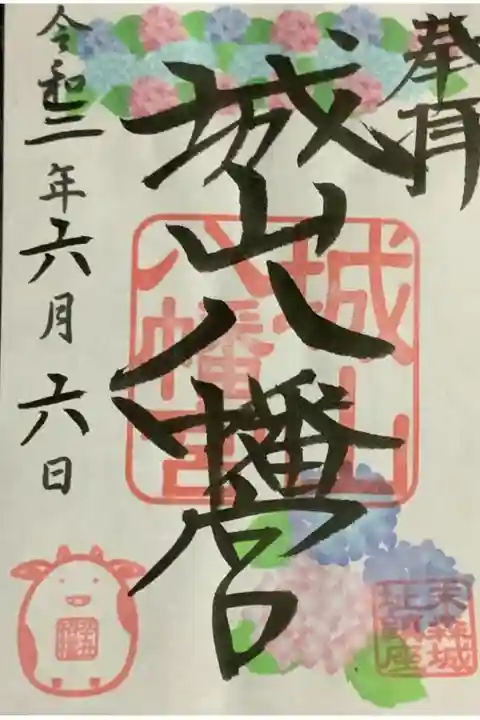 奉拝
城山八幡宮
城山
八幡宮
末森城
址鎮座
令和三年六月六日